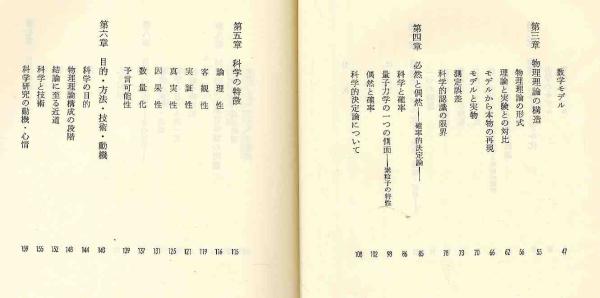 数学モデル 47
第三章 物理理論の構造 53
物理理論の形式 56
理論と実験との対比 62
モデルから本物の再現 66
モデルと実物 70
測定誤差 73
科学的認識の限界 78
第四章 必然と偶然——確率的決定論—— 85
科学と確率 86
量子力学の一つの側面——素粒子の特性 93
偶然と確率 102
科学的決定論について 108
第五章 科学の特徴 115
論理性 116
客観性 119
実証性 121
真実性 125
因果性 131
数量化 137
予言可能性 139
第六章 目的・方法・技術・動機 143
科学の目的 144
物理理論構成の段階 148
結論に至る近道 152
科学と技術 155
科学研究の動機・心情 159